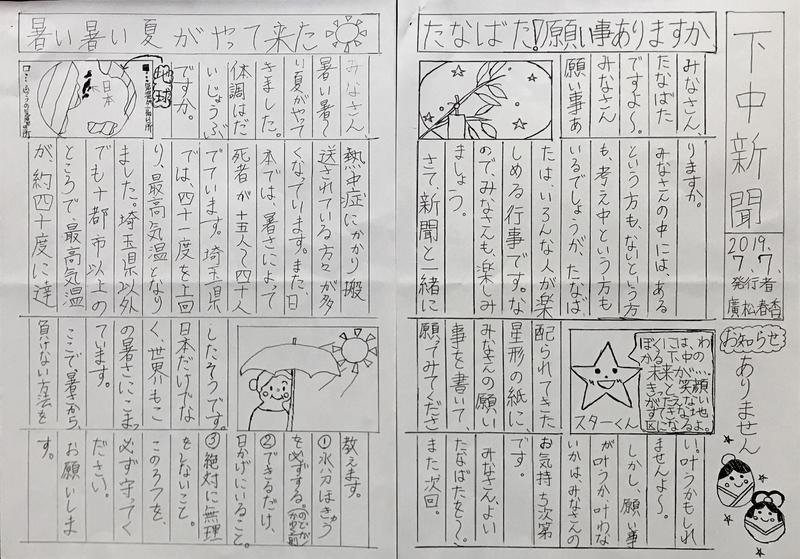 下中新聞
2019.
7.7.
発行者
廣松春香
お知らせ
ありません
たなばた!願い事ありますか
みなさん、
たなばた
ですよ~。
みなさん
願い事あ
りますか。
みなさんの中には、ある
という方も、ないという方
も、考え中という方も
いるでしょうが、たなば
たは、いろんな人が楽
しめる行事です。な
ので、みなさんも、楽しみ
ましょう。
さて、新聞と一緒に
配られてきた
星形の紙に、
みなさんの願い
事を書いて、
願ってみてくださ
い。叶うかもしれ
ませんよ~。
しかし、願い事
が叶うか叶わな
いかは、みなさんの
お気持ち次第
です。
みなさん、よい
たなばたを~。
また次回。
スターくん
暑い暑い夏がやって来た
みなさん、
暑い暑~
い夏がやって
きました。
体調はだ
いじょうぶ
ですか。
地球
日本
熱中症にかかり搬
送されている方々が多
くなっています。また、日
本では、暑さによって
死者が十五人~四十人
でています。埼玉県
では、四十一度を上回
り、最高気温となり
ました。埼玉県以外
でも十都市以上の
ところで、最高気温
が、約四十度に達
したそうです。
日本だけでな
く、世界もこ
の暑さにこまっ
ています。
ここで、暑さから
負けない方法を
教えます。
①水分ほきゅう
を必ずする。
②できるだけ、
日かげにいること。
③絶対に無理
をしないこと。
この3つを、
必ず守ってく
ださい。
お願いしま
す。